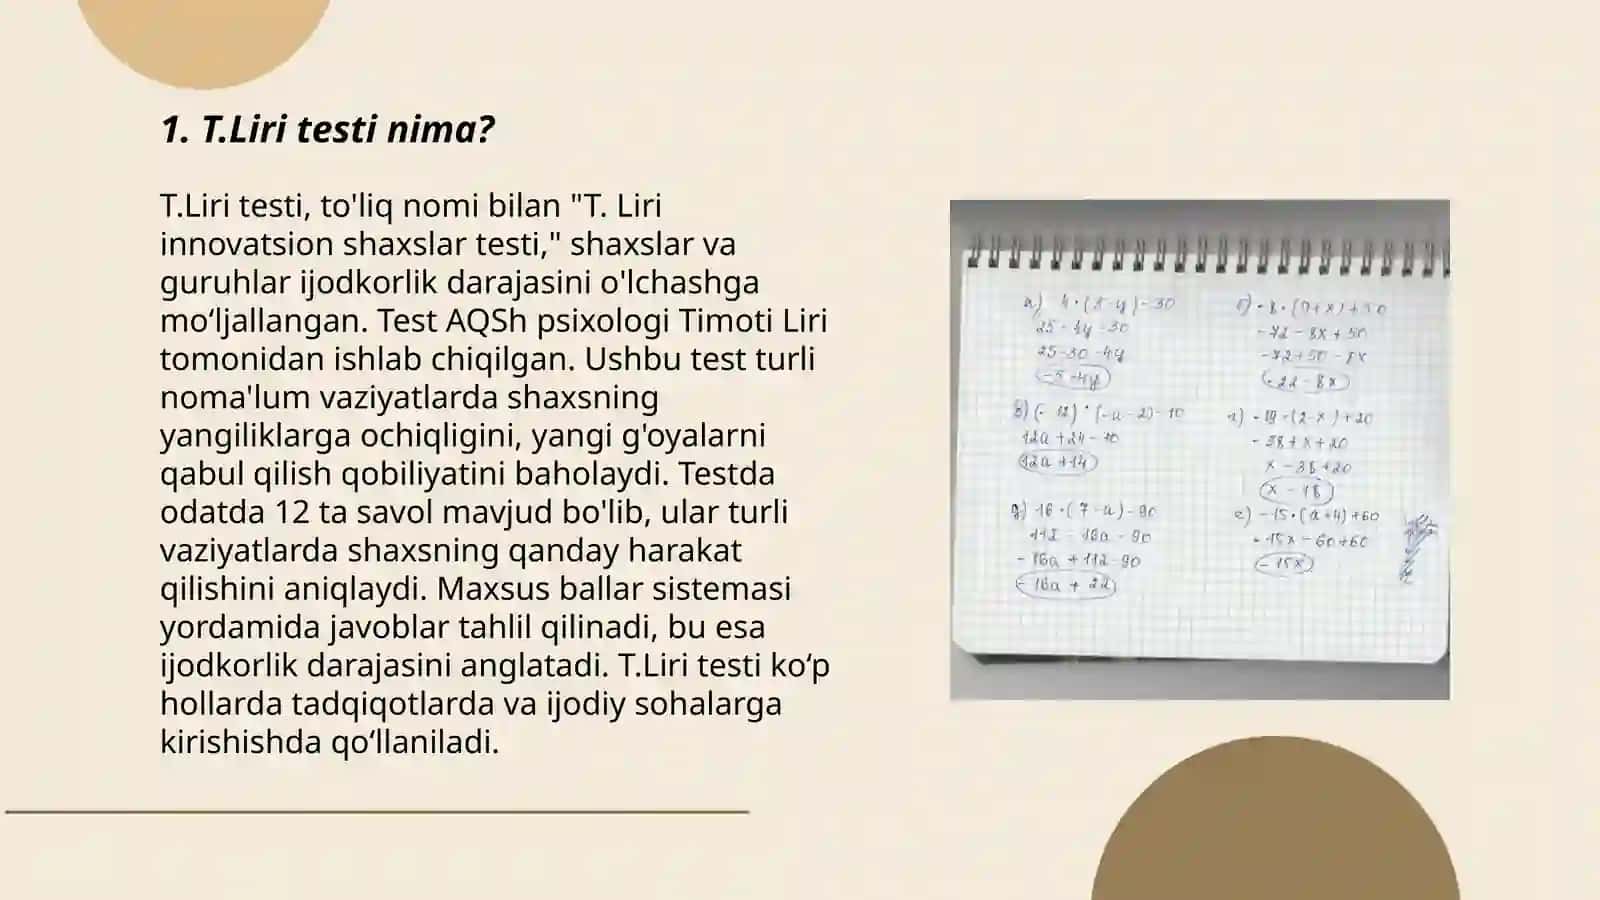 1. T.Liri testi nima?
T.Liri testi, to'liq nomi bilan "T. Liri
innovatsion shaxslar testi," shaxslar va
guruhlar ijodkorlik darajasini o'lchashga
mo‘ljallangan. Test AQSh psixologi Timoti Liri
tomonidan ishlab chiqilgan. Ushbu test turli
noma'lum vaziyatlarda shaxsning
yangiliklarga ochiqligini, yangi g'oyalarni
qabul qilish qobiliyatini baholaydi. Testda
odatda 12 ta savol mavjud bo'lib, ular turli
vaziyatlarda shaxsning qanday harakat
qilishini aniqlaydi. Maxsus ballar sistemasi
yordamida javoblar tahlil qilinadi, bu esa
ijodkorlik darajasini anglatadi. T.Liri testi ko‘p
hollarda tadqiqotlarda va ijodiy sohalarga
kirishishda qo‘llaniladi.
25-4y-30
25-30-4y
-5-4y
12a+24-10
12a+14
-16a+112-90
-16a+22
-72-8x+50
-72+50-8x
-22-8x
-38+x+20
x-38+20
x-18
-15x-60+60
-15x